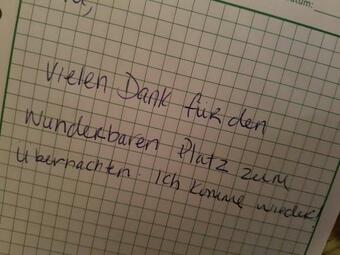 tum:
Vielen Dank für den
wunderbaren Platz zum
übernachten. Ich komme wieder!